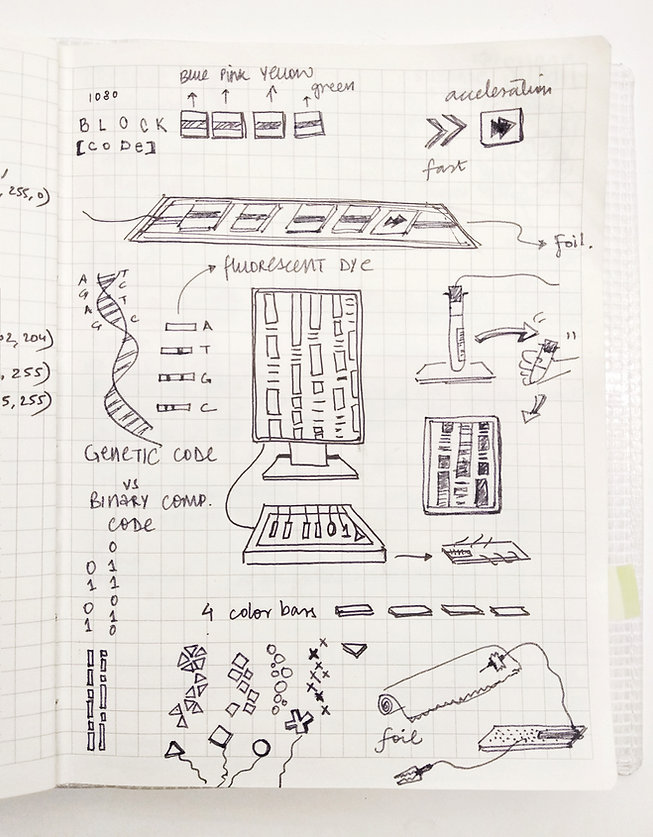 Blue Pink Yellow
green
1080
BLOCK
[CODE]
acceleration
fast
, 255, 0)
foil.
fluorescent dye
A T
G C
A T
G C
A
T
G
C
02, 204)
, 255)
5, 255)
GENETIC CODE
vs
BINARY COMP.
CODE
0
0 1
1 1
0 0
1 1
0
0 1
4 color bars
foil